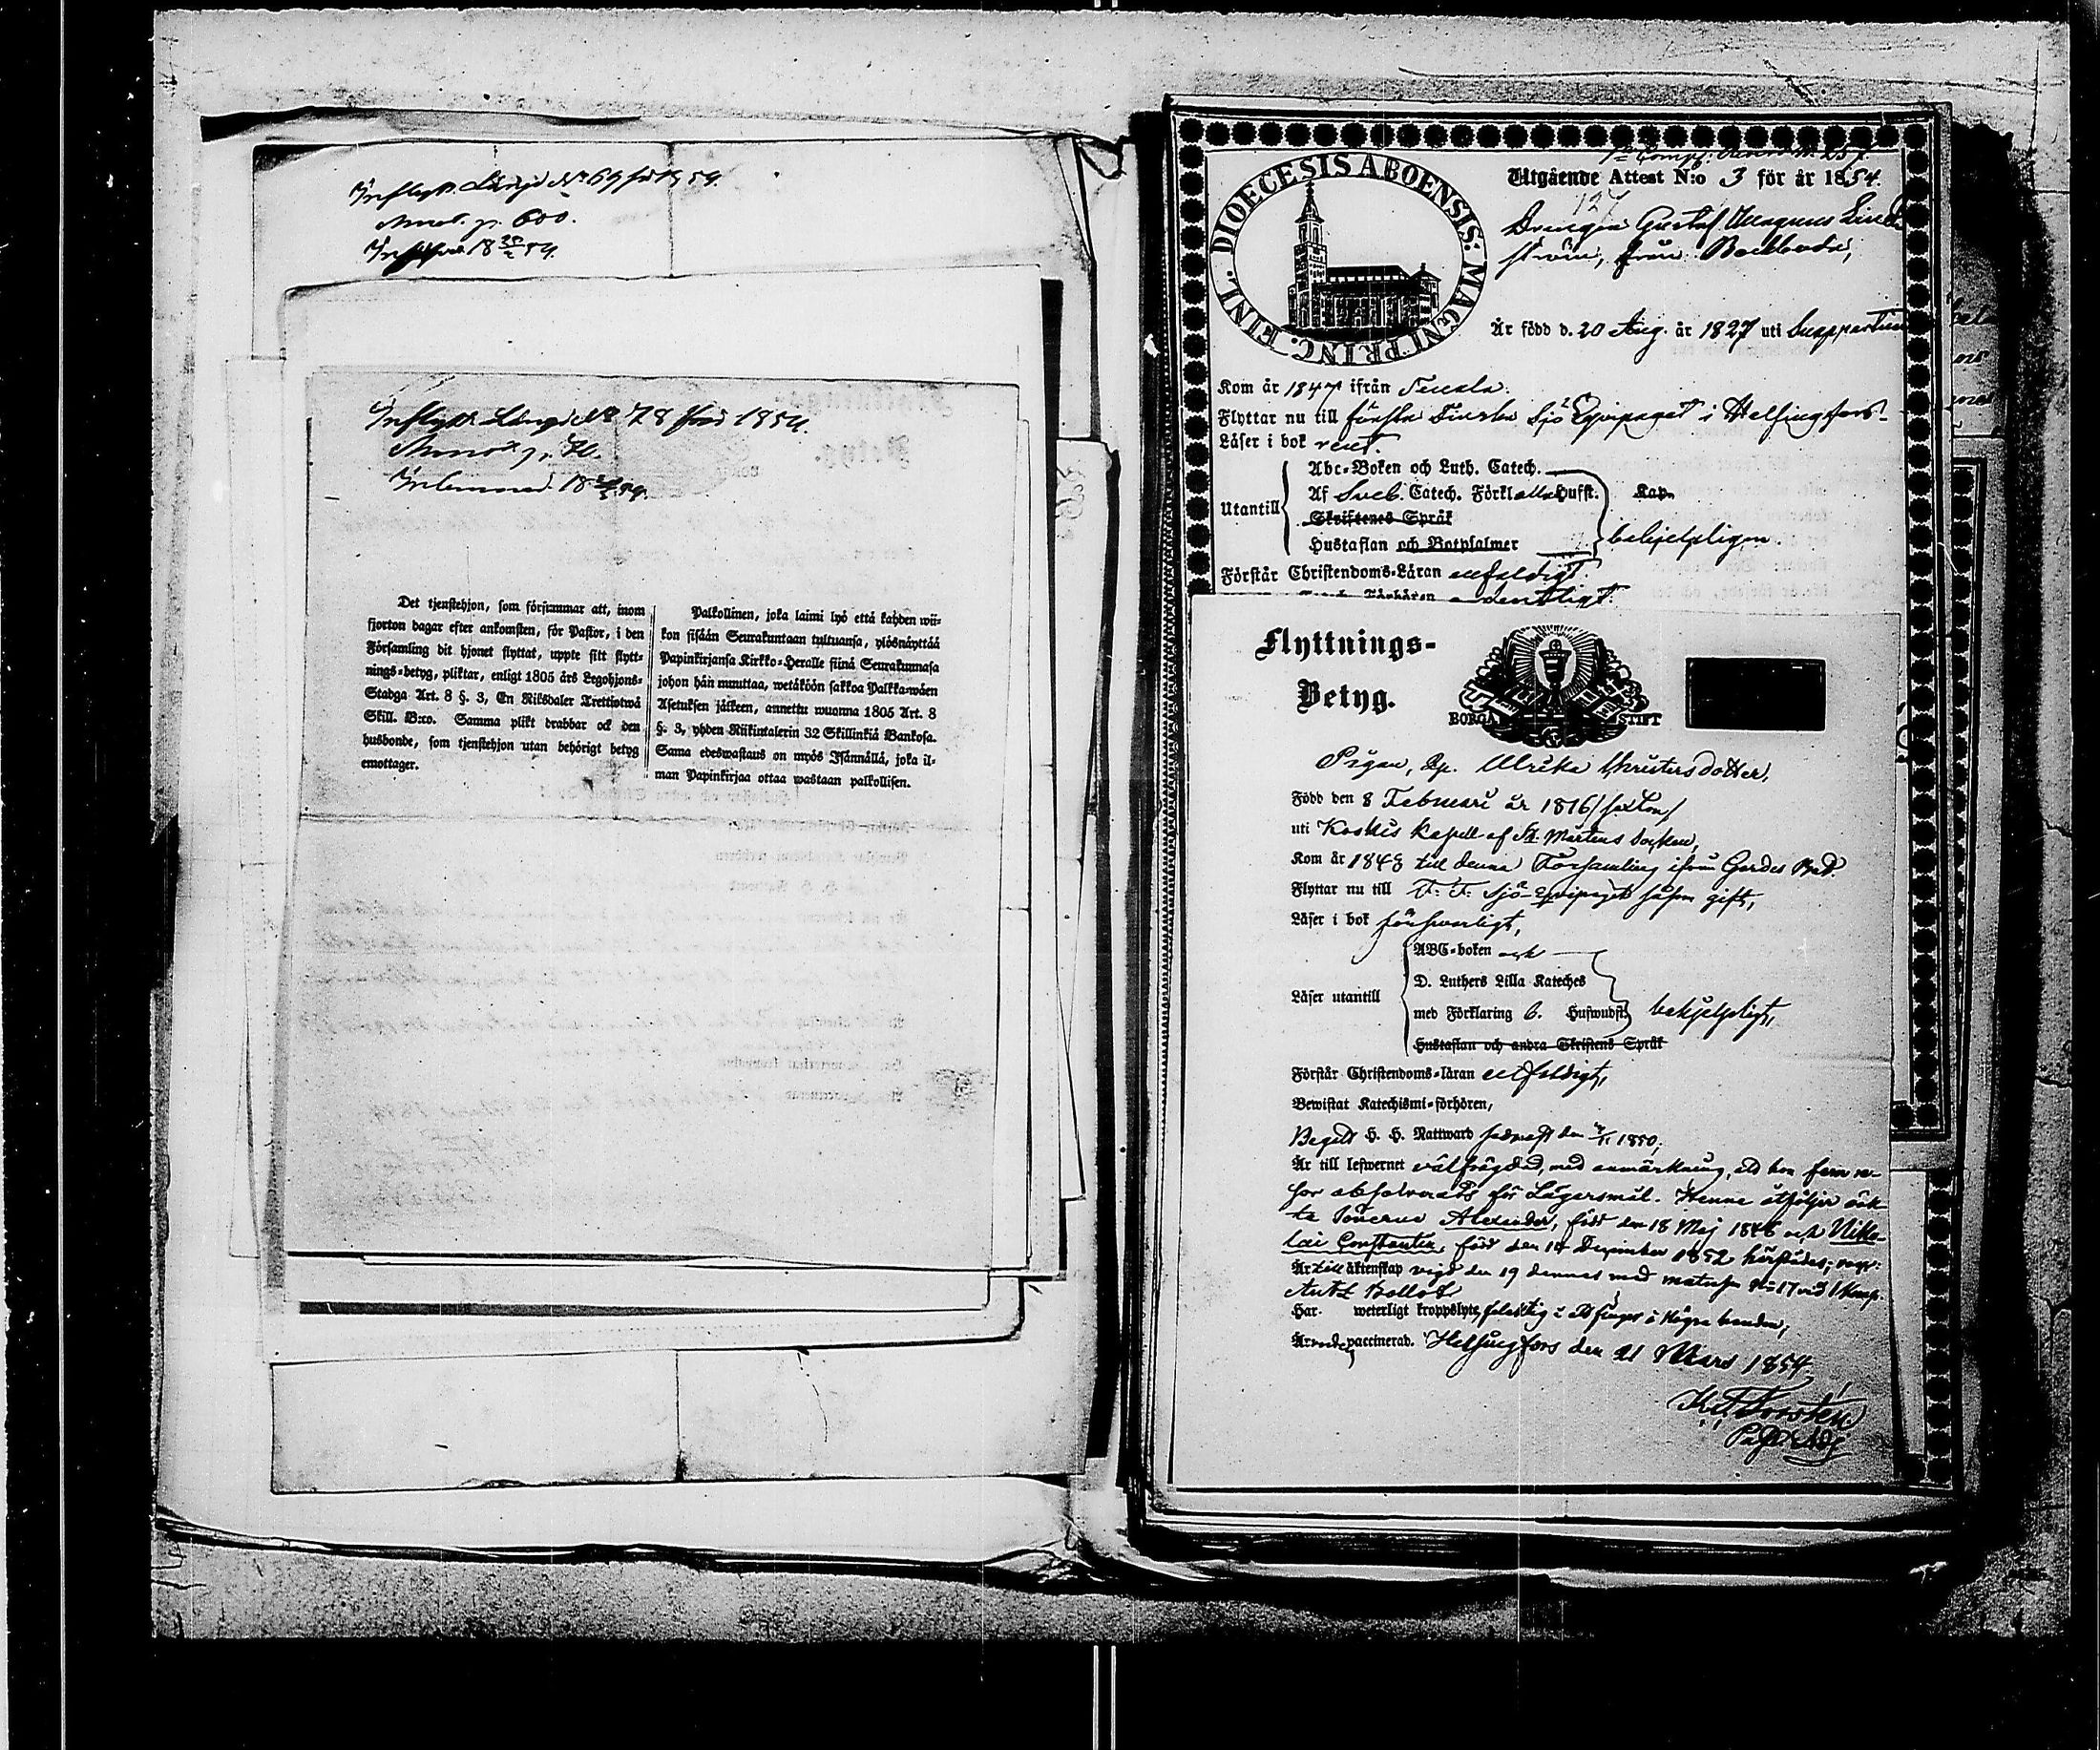 Inflytt. Längd No 69 för 1854.
p. 600.
Inflytt. Längd No 78 för 1854.
p.
Det tjenstehjon, som försummar att, inom
fjorton dagar efter ankomsten, för Pastor, i den
Församling dit hjonet flyttat, uppte sitt flytt-
nings-betyg, pliktar, enligt 1805 års Legohjons-
Stadga Art. 8 §. 3, En Riksdaler Trettiotwå
Skill. B:co. Samma plikt drabbar ock den
husbonde, som tjenstehjon utan behörigt betyg
emottager.
Palkollinen, joka laimi lyö että kahden wii-
kon sisään Seurakuntaan tultuansa, ylösnäyttää
Papinkirjansa Kirkko-Heralle siinä Seurakunnasa
johon hän muuttaa, wetäköön sakkoa Palkka-wäen
Asetuksen jälkeen, annettu wuonna 1805 Art. 8
§. 3, yhden Riikintalerin 32 Skillinkiä Bankosa.
Sama edeswastaus on myös Isännällä, joka il-
man Papinkirjaa ottaa wastaan palkollisen.
DIOECESIS ABOENSIS: MAGNI PRINC. FINL.
Utgående Attest N:o 3 för år 1854.
127
Drengen Gustaf Magnus Lind-
ström, från
Är född d. 20 Aug. år 1827 uti
Kom år 1847 ifrån Tenala.
Flyttar nu till första Finska Sjö Equipaget i Helsingfors.
Läser i bok rent.
Utantill
Abc-Boken och Luth. Catech.
Af Sveb. Catech. Förkl. Husst.
Kap.
Skriftenes Språk
Hustaflan och Botpsalmer
behjelpligen.
Förstår Christendoms-Läran enfaldigt.
ordentligt.
Flyttnings-
Betyg.
BORGÅ STIFT
Pigan, Ulrika Christersdotter,
Född den 8 Februari år 1816/sexton/
uti Koskis kapell af St. Mårtens socken,
Kom år 1848 till denna Församling ifrån Gardes Bat.
Flyttar nu till F. F. Sjö-equipaget såsom gift,
Läser i bok försvarligt,
Läser utantill
ABC-boken och
D. Luthers Lilla Kateches
med Förklaring 6. Huswudst.
behjelpligt,
Hustaflan och andra Skriftens Språk
Förstår Christendoms-läran enfaldigt,
Bewistat Katechismi-förhören,
Begått H. H. Nattward sednast den 1850,
Är till lefwernet välfrägdad, med anmärkning, att hon fem re-
sor absolverats för Lägersmål. Henne åtföljer äck-
ta Sönerne Alexander, född den 18 Maj 1848 och Niko-
lai Constantin, född den 14 December 1852 härstädes,
Är till äktenskap vigd den 19 dennes med matrosen No 17 vid 1 Komp.
Har weterligt kroppslyte, felaktig i ett finger å högra handen,
Är vaccinerad. Helsingfors den 21 Mars 1854